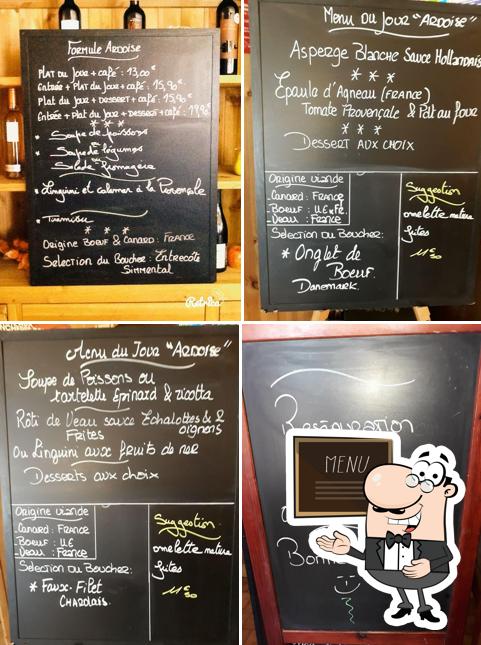 Formule Ardoise
Plat du Jour + café : 13,00€
Entrée + Plat du Jour + café : 15,90€
Plat du Jour + Dessert + café : 15,90€
Entrée + Plat du Jour + Dessert + café : 19,90€
* * *
* Soupe de poissons
* Soupe de légumes
Salade fromagère
* Linguini et calamar à la Provençale
* Tiramisu
Origine Boeuf & Canard : France
Selection du Boucher : Entrecôte
Simmental
Retrica
Menu du Jour "Ardoise"
Asperge Blanche Sauce Hollandais
* * *
Epaula d'Agneau (France)
Tomate Provençale & Pdt au four
* * *
Dessert aux choix
Origine viande
Canard : France
Boeuf : UE & Fr.
Veau : France
Selection du Boucher :
* Onglet de
Boeuf.
Danemark.
Suggestion
omelette nature
frites
11€50
Menu du Jour "Ardoise"
Soupe de Poissons ou
tartelette Epinard & ricotta
Rôti de Veau sauce Echalottes & oignons
Frites
Ou Linguini aux fruits de mer
Desserts aux choix
Origine viande
Canard : France
Boeuf : UE
Veau : France
Selection du Boucher :
* Faux-Filet
Charolais.
Suggestion
omelette nature
frites
11€50
Restauration
MENU